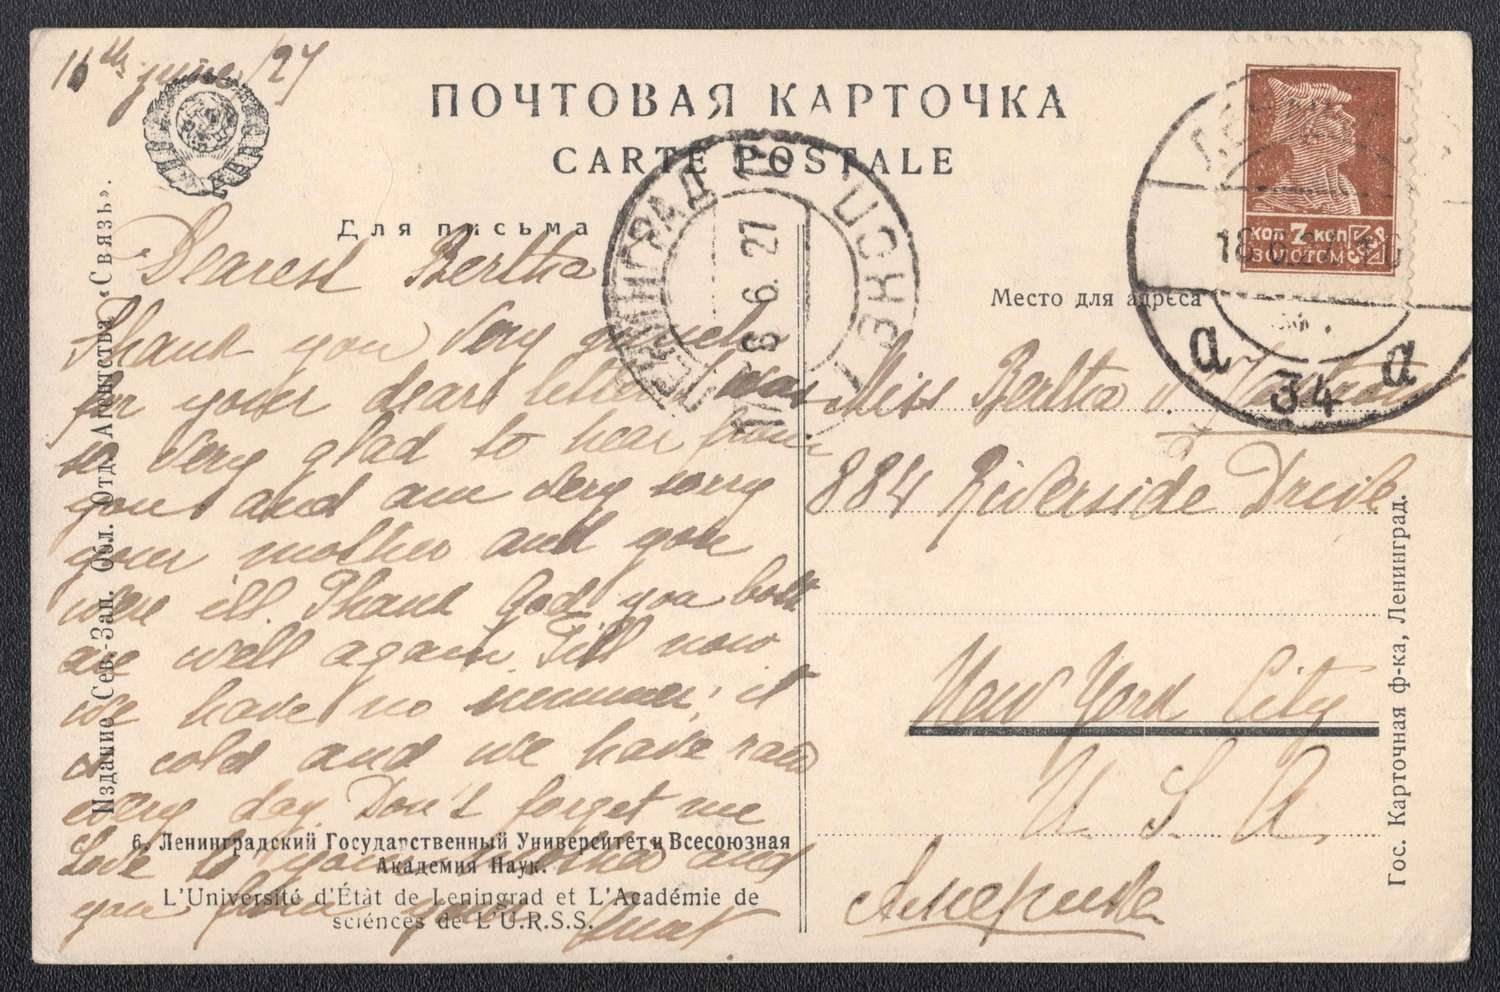 16th june /27
ПОЧТОВАЯ КАРТОЧКА
CARTE POSTALE
Для письма
Место для адреса
Dearest Bertha
Thank you very much
for your dear letter was
so very glad to hear from
you and am very sorry
your mother and you
were ill. Thank God you both
are well again. Till now
we have no summer, it
is cold and we have rain
every day. Don't forget me
Love to your mother and
you from your
6. Ленинградский Государственный Университет и Всесоюзная
Академия Наук.
L'Université d'Étàt de Leningrad et L'Académie de
sciénces de L'U.R.S.S.
Издание Сев.-Зап. Обл. Отд. Агентства «Связь».
Miss Bertha v.
884 Riverside Drive
New York City
U. S. A.
Америка
Гос. Карточная ф-ка, Ленинград.
КОП 7 КОП
ЗОЛОТОМ
ЛЕНИНГРАД
6. 27
18.6.27
а 34 а